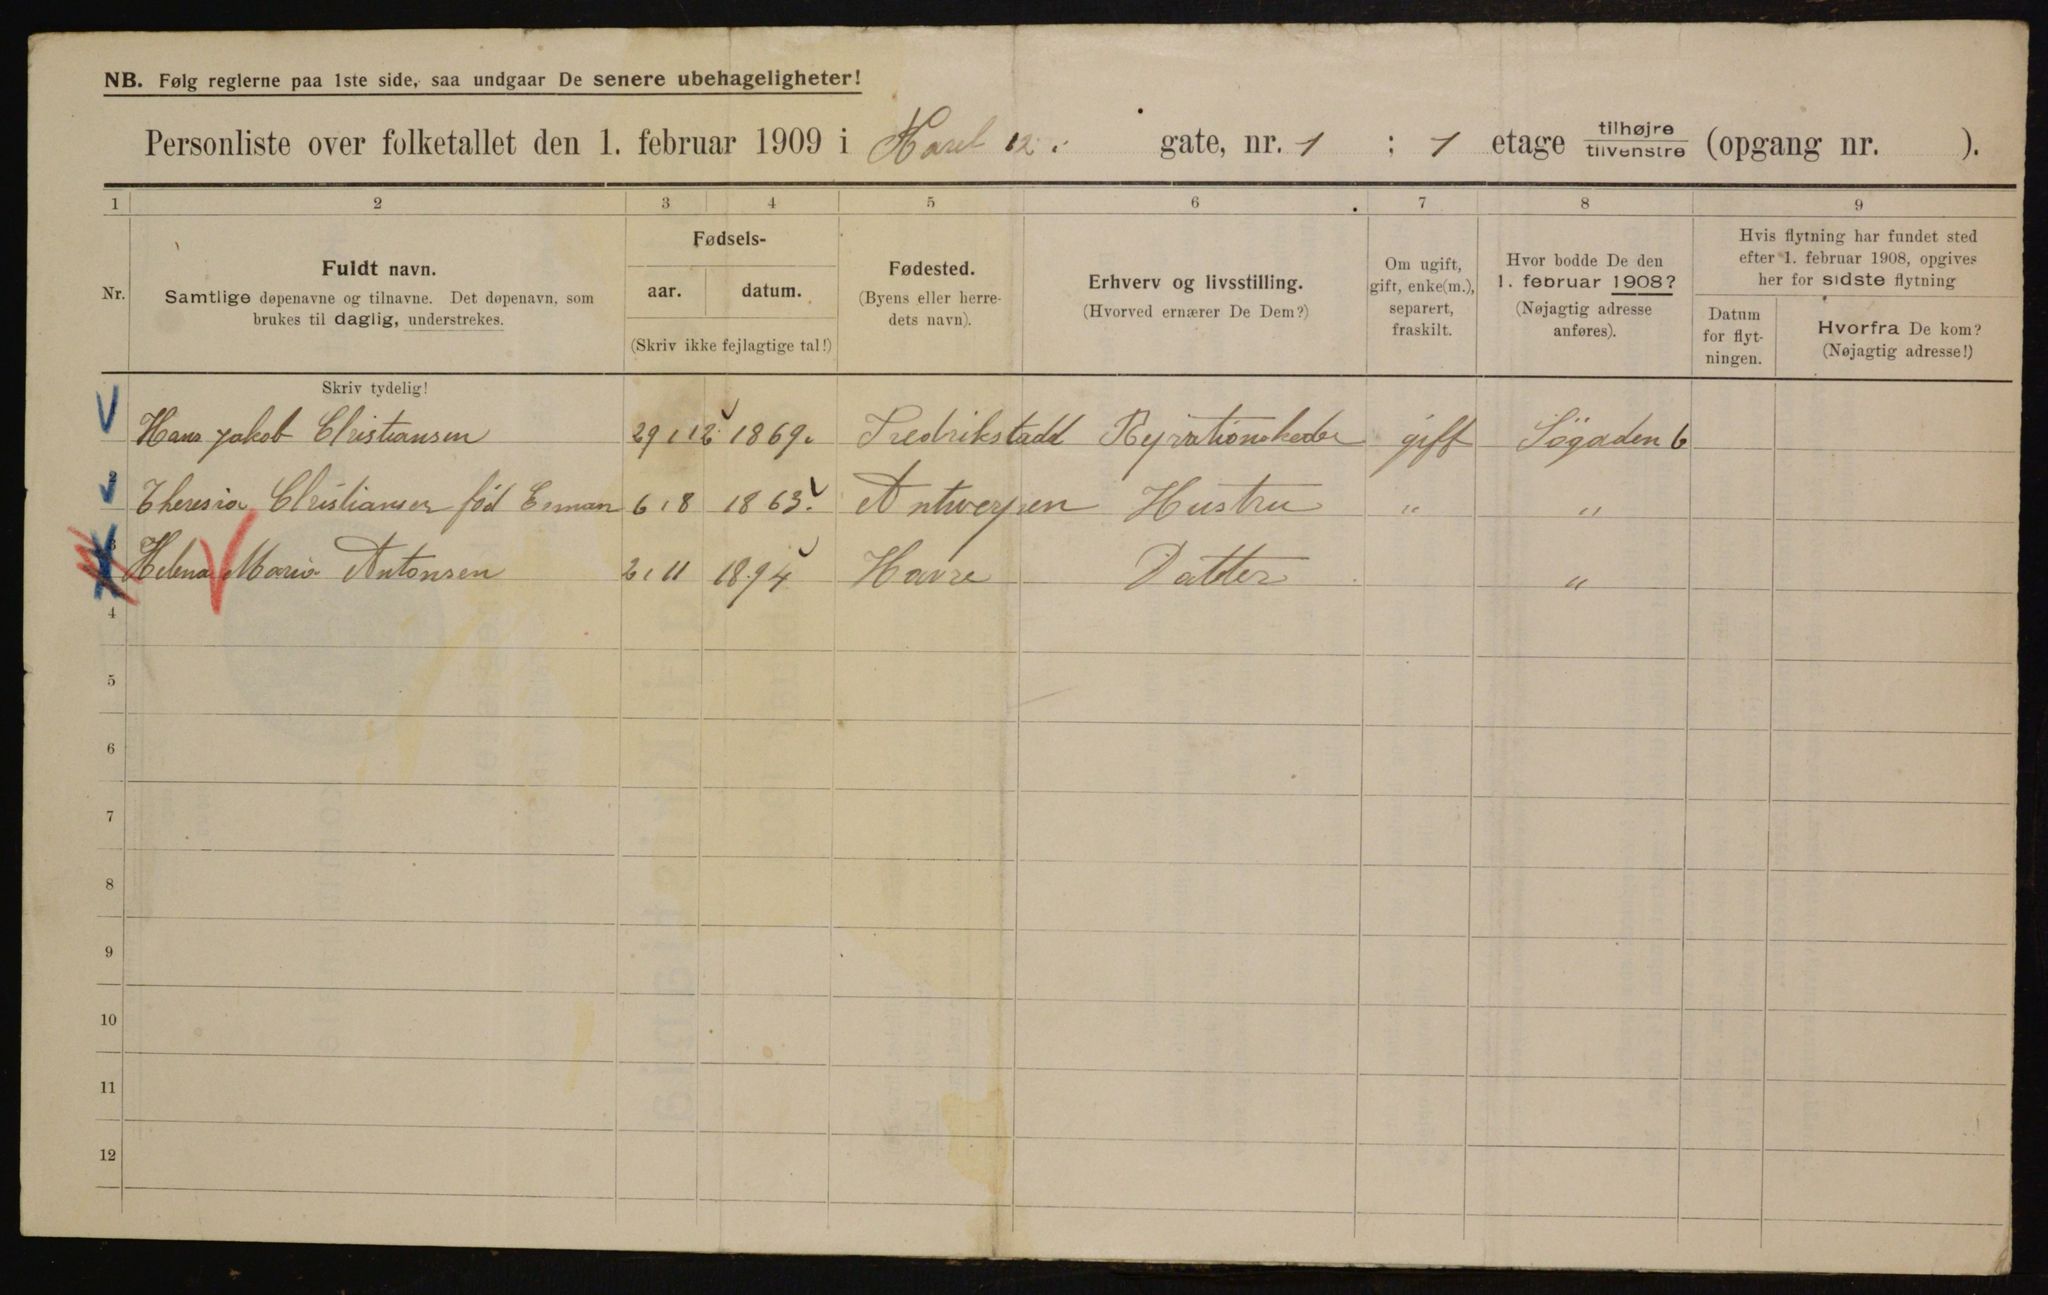 NB. Følg reglerne paa 1ste side, saa undgaar De senere ubehageligheter!
Personliste over folketallet den 1. februar 1909 i Karl 12. gate, nr. 1 ; 1 etage tilhøjre tilvenstre (opgang nr. ).
1 2 3 4 5 6 7 8 9
Nr.
Fuldt navn.
Samtlige døpenavne og tilnavne. Det døpenavn, som
brukes til daglig, understrekes.
Fødsels-
aar. datum.
(Skriv ikke fejlagtige tal!)
Fødested.
(Byens eller herre-
dets navn).
Erhverv og livsstilling.
(Hvorved ernærer De Dem?)
Om ugift,
gift, enke(m.),
separert,
fraskilt.
Hvor bodde De den
1. februar 1908?
(Nøjagtig adresse
anføres).
Hvis flytning har fundet sted
efter 1. februar 1908, opgives
her for sidste flytning
Datum
for flyt-
ningen.
Hvorfra De kom?
(Nøjagtig adresse!)
Skriv tydelig!
Hans Jakob Christiansen 29 12 1869. Fredrikstadd gift Søgaden 6
2 Theresia Christiansen fød 6 8 1863. Antwerpen Hustru " "
3 Helena Maria Antonsen 2 11 1894 Havre Datter "
4
5
6
7
8
9
10
11
12